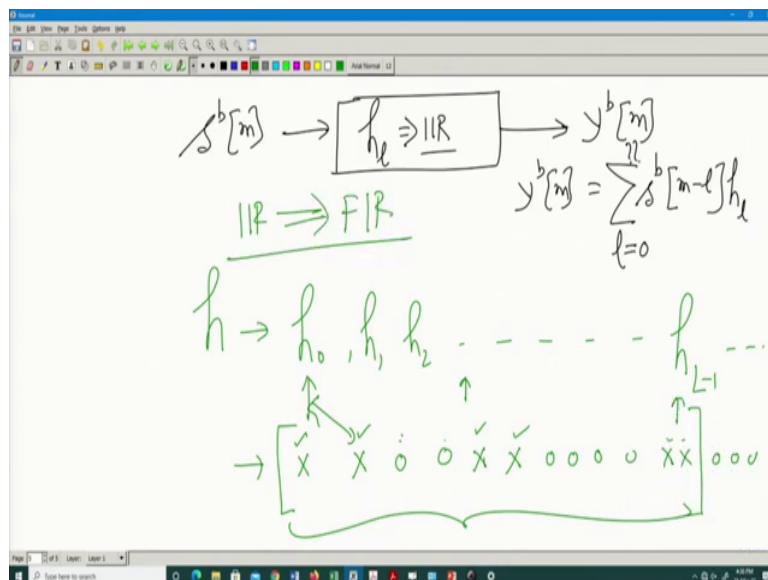 Journal
File Edit View Page Tools Options Help
Arial Normal 12
s^b[m] → h_l ⇒ IIR → y^b[m]
y^b[m] = Σ_{l=0}^{22} s^b[m-l] h_l
IIR ⇒ FIR
h → h_0, h_1 h_2 . - - - - - h_{L-1} - - ..
→ [x x 0 0 x x 0 0 0 0 x x] 0 0 0
Page 5 of 5 Layer: Layer 1
Type here to search